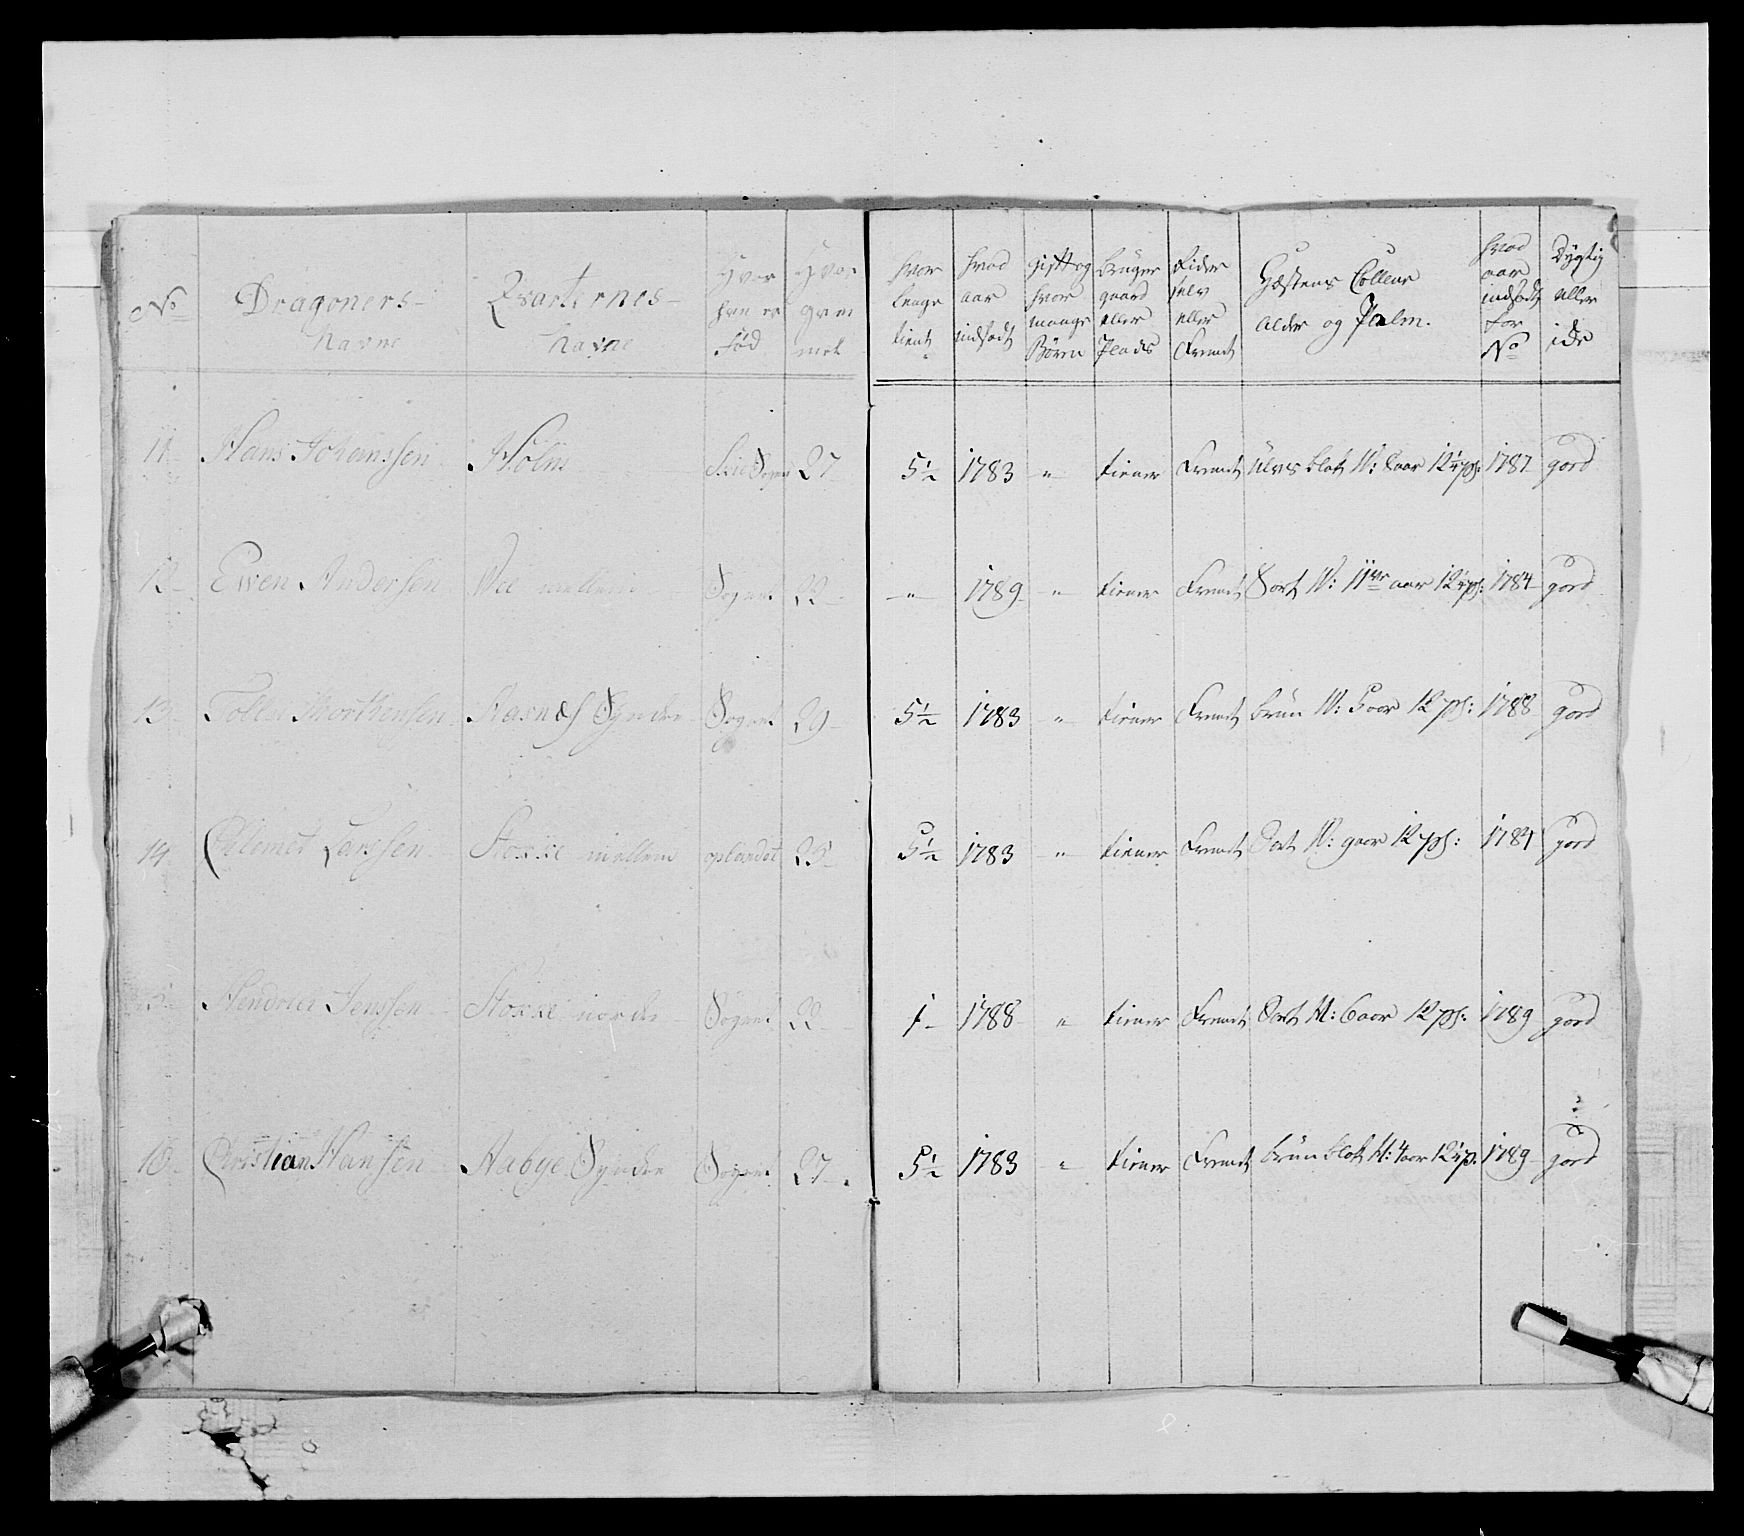 No Dragoners Navne Qvarternes Navne Hvor han er Fød Hvor gam mel hvor lenge tient hvad aar indsadt gift og hvor mange Børn bruger gaard eller Plads Rider selv eller Fremt Hæstens Colleur alder og Palm. hvad aar indsadt for No Dygtig eller ide
11 Hans Johanssen Holm Skie Sogn 27 5½ 1783 " tiener Fremt blot W: aar 12¼ 1787 god
12 Ewen Andersen mellem Sognet 22 " 1789 " tiener Fremt Sort W: 11 aar 12¼ 1784 god
13 Morthensen Synder Sognet 29 5½ 1783 " tiener Fremt brun W: 5 aar 12 1788 god
14 Clemet Larssen Stoxke mellem oplandet 25 5½ 1783 " tiener Fremt Sort W: 9 aar 12 1784 god
15 Hendrich Jenssen Stoxke nordre Sognet 22 1 1788 " tiener Fremt Sort H: 6 aar 12 1789 god
16 Christian Hanssen Aabye Syndre Sognet 27 5½ 1783 " tiener Fremt brun blot H: aar 12¼ 1789 god